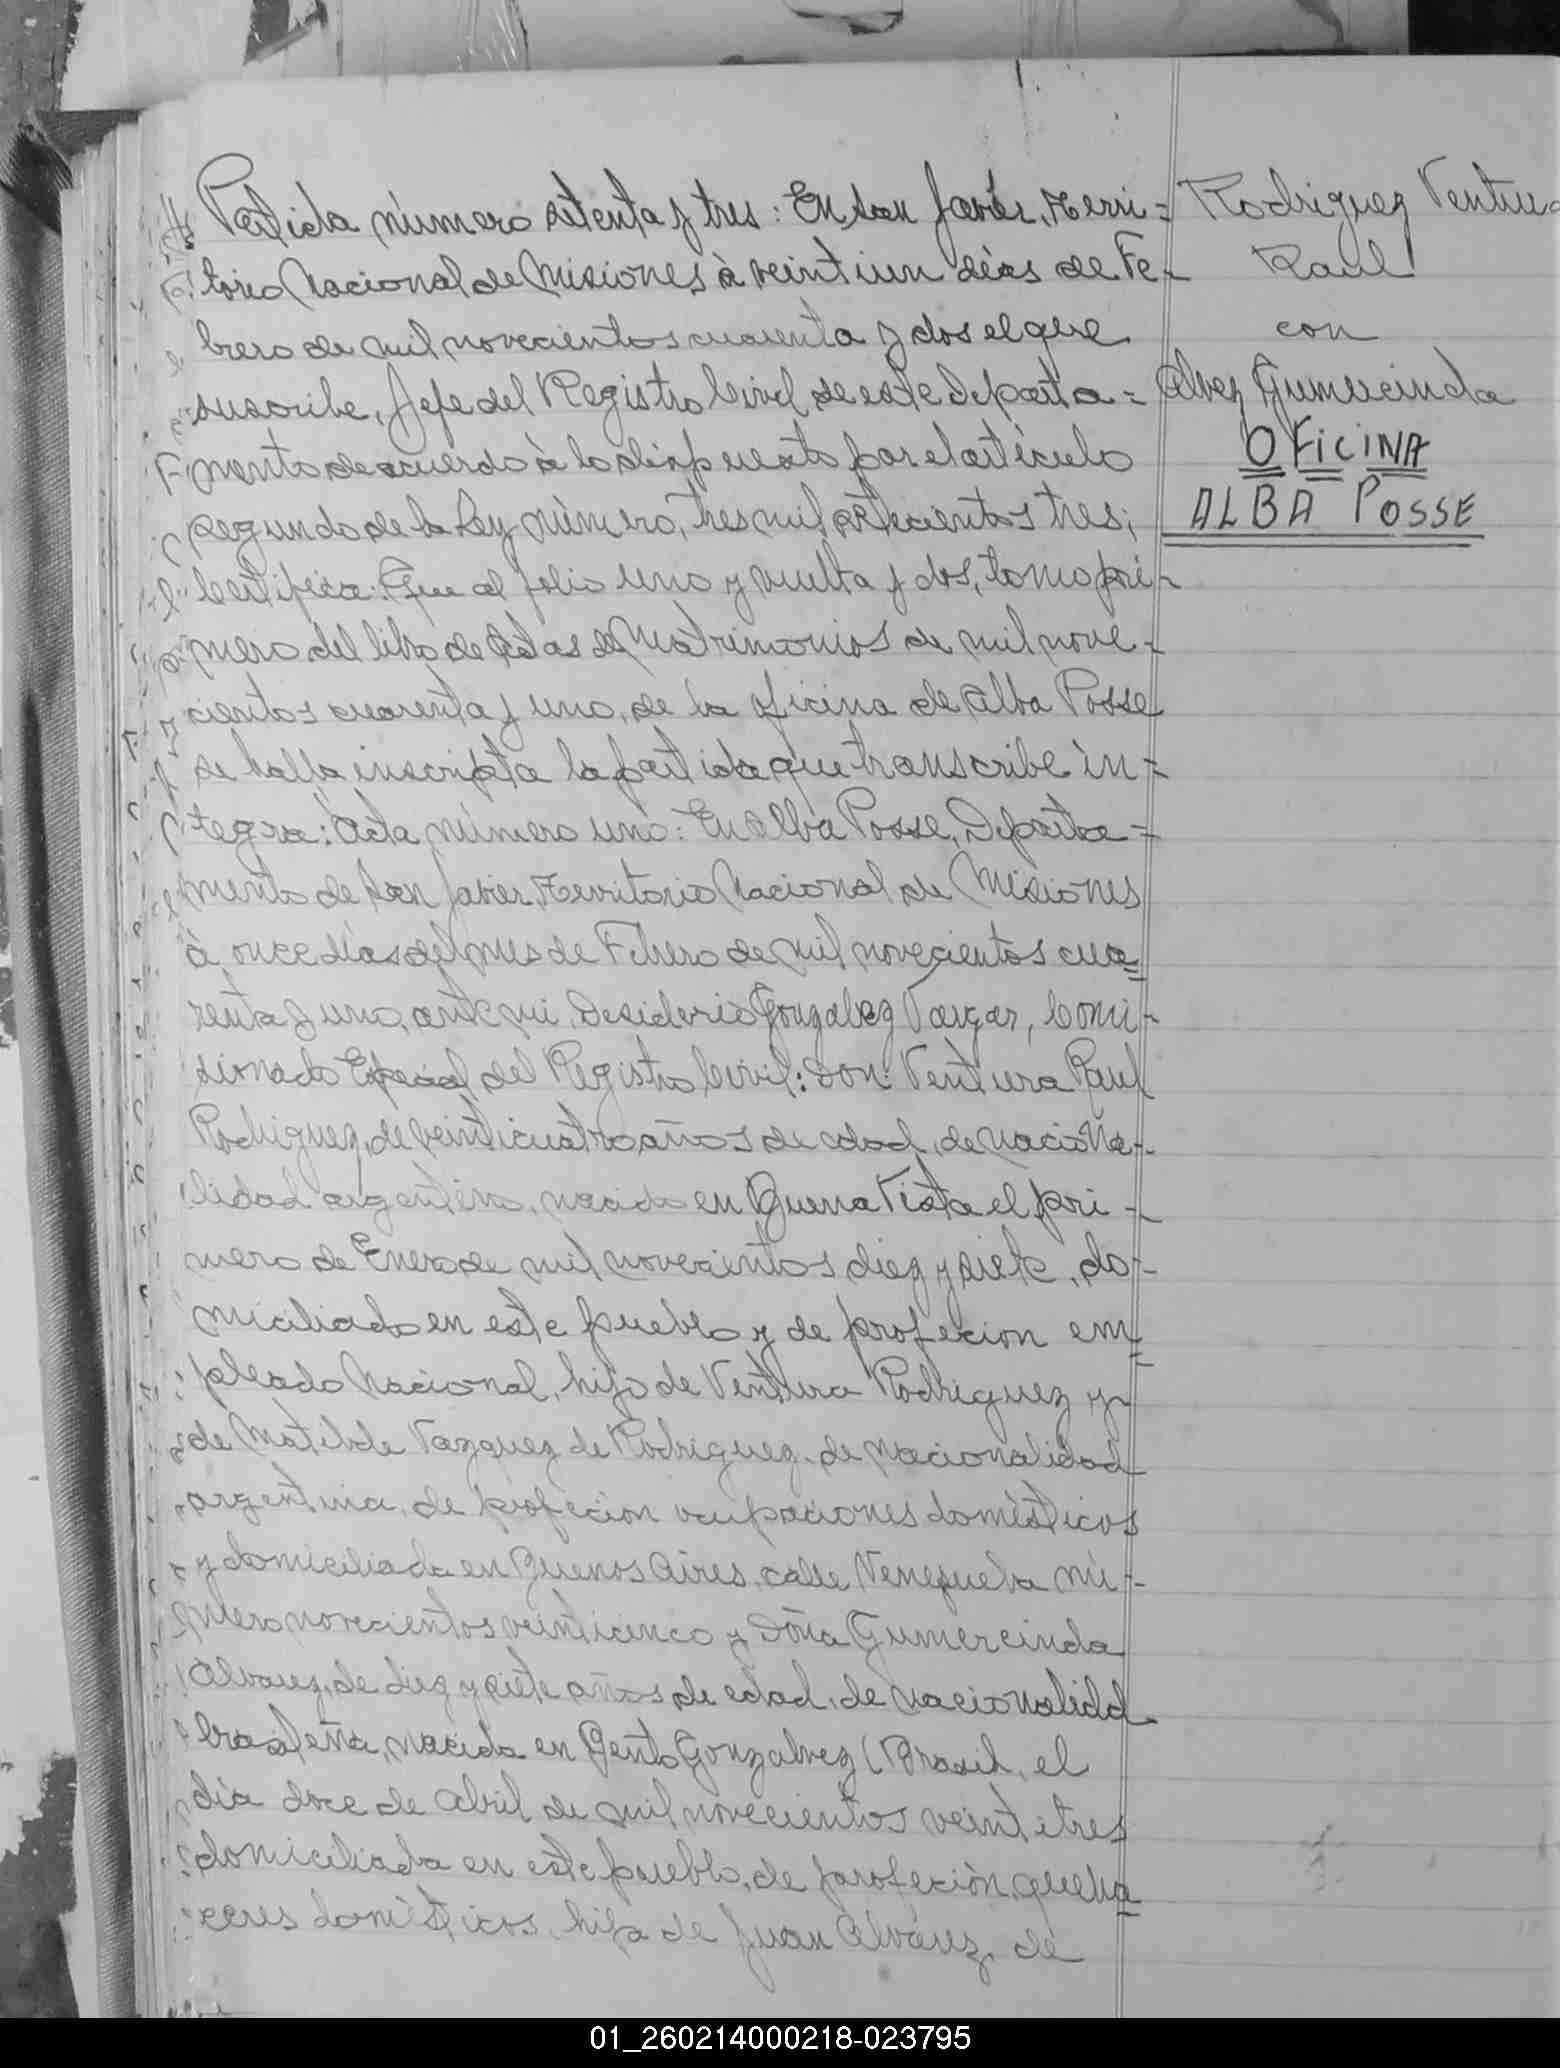 Partida número setenta y tres: En San Javier, Terri=
torio Nacional de Misiones à veintiun dias de Fe-
brero de mil novecientos cuarenta y dos el que
suscribe, Jefe del Registro Civil de este Departa=
mento de acuerdo à lo dispuesto por el artículo
segundo de la Ley número, tres mil setecientos tres;
Certifica: Que al folio uno y vuelta y dos, tomo pri-
mero del libro de Actas de Matrimonios de mil nove-
cientos cuarenta y uno, de la oficina de Alba Posse
se halla inscripta la partida que transcribe in=
tegra: Acta número uno: En Alba Posse, Departa=
mento de San Javier, Territorio Nacional de Misiones
à once dias del mes de Febrero de mil novecientos cua=
renta y uno, ante mi, Desiderio Gonzalez Vargas, Comi-
sionado Especial del Registro Civil: Don: Ventura Raul
Rodriguez, de veinticuatro años de edad, de naciona-
lidad argentino, nacido en Buena Vista el pri-
mero de Enero de mil novecientos diez y siete, do-
miciliado en este pueblo y de profecion em=
pleado Nacional, hijo de Ventura Rodriguez y
de Matilde Vazquez de Rodriguez, de nacionalidad
argentina, de profeción ocupaciones domésticos
y domiciliada en Buenos Aires, calle Venezuela nú-
mero novecientos veinticinco y Doña Gumercinda
Alvarez, de diez y siete años de edad, de nacionalidd
brasileña, nacida en Bento Gonzalvez (Brasil, el
dia doce de Abril de mil novecientos veintitres
domiciliada en este pueblo, de profeción, queha=
ceres domésticos, hija de Juan Alvarez, de
Rodriguez Ventura
Raul
con
Alvez Gumucinda
OFiCiNA
ALBA POSSE
01_260214000218-023795